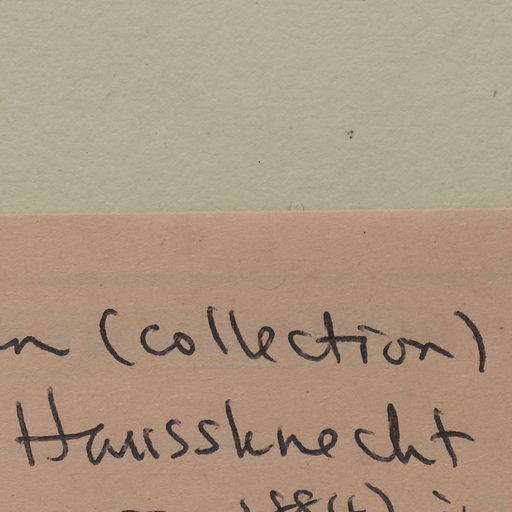 (collection)
Haussknecht